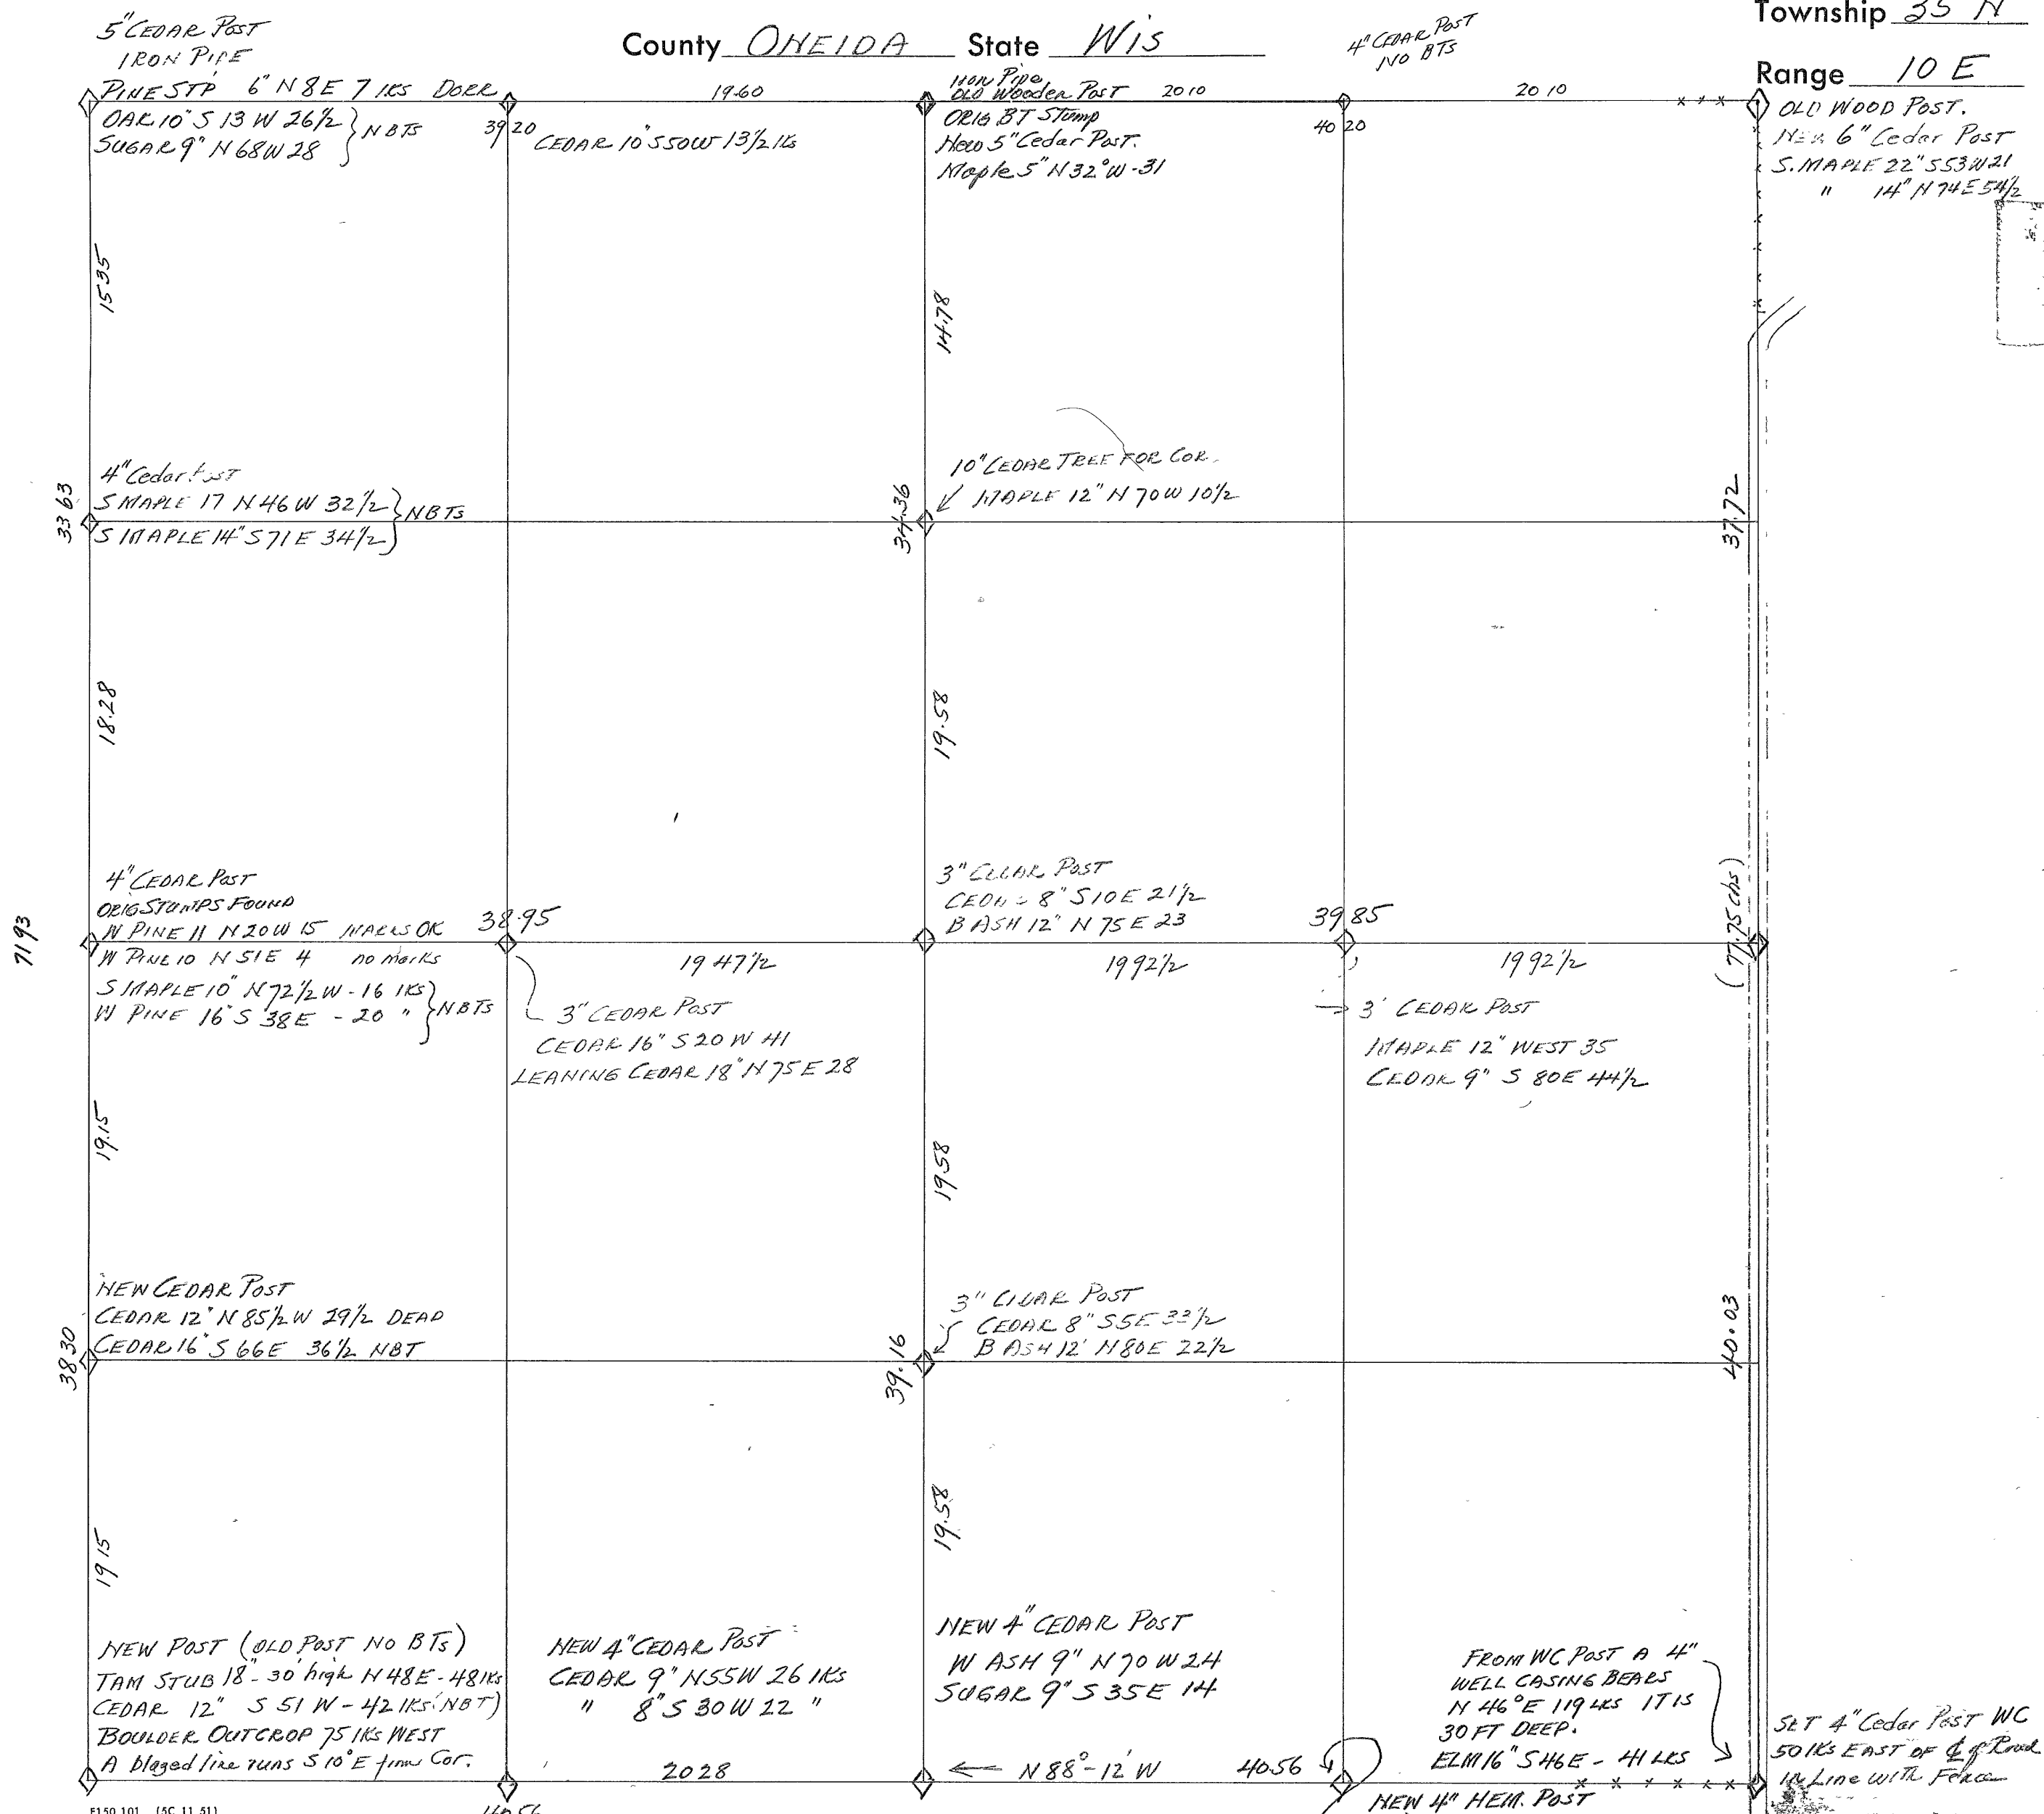 Township 35 N
County ONEIDA State Wis
Range 10 E
5" CEDAR POST
IRON PIPE
PINE STP 6" N 8 E 7 lKS DORR
OAK 10" S 13 W 26½ } NBTS
SUGAR 9" N 68 W 28
39 20
CEDAR 10" S50W 13½ lks
19.60
Iron Pipe
OLD Wooden Post
ORIG BT Stump
New 5" Cedar Post.
Maple 5" N 32° W - 31
20 10
4" CEDAR POST
NO BTS
40 20
20 10
OLD WOOD POST.
New 6" Cedar Post
S. MAPLE 22" S53W21
" 14" N 74E 54½
15 35
14.78
4" Cedar Post
S MAPLE 17 N 46 W 32½ } NBTS
S MAPLE 14" S 71 E 34½
33 63
10" CEDAR TREE FOR COR.
MAPLE 12" N 70 W 10½
34.36
37.72
18.28
19.58
4" CEDAR POST
ORIG STUMPS FOUND
W PINE 11 N 20 W 15 MARKS OK
W PINE 10 N 51 E 4 no marks
S MAPLE 10" N 72½ W - 16 lKS } NBTS
W PINE 16" S 38E - 20 "
7193
38.95
19 47½
3" CEDAR POST
CEDAR 16" S 20 W 41
LEANING CEDAR 18" N 75 E 28
3" CEDAR POST
CEDAR 8" S 10 E 21½
B ASH 12" N 75 E 23
19 92½
39 85
19 92½
3" CEDAR POST
MAPLE 12" WEST 35
CEDAR 9" S 80E 44½
(77.75 chs)
19.15
19 58
NEW CEDAR POST
CEDAR 12" N 85½ W 29½ DEAD
CEDAR 16" S 66 E 36½ NBT
38 30
3" CEDAR POST
CEDAR 8" S5E 33½
B ASH 12' N 80E 22½
39.16
40.03
19 15
19.58
NEW POST (OLD POST NO BTs)
TAM STUB 18" - 30' high N 48E - 48 lKs
CEDAR 12" S 51 W - 42 lKs (NBT)
BOULDER OUTCROP 75 lKs WEST
A blazed line runs S 10° E from Cor.
NEW 4" CEDAR POST
CEDAR 9" N 55 W 26 lKS
" 8" S 30 W 22 "
20 28
NEW 4" CEDAR POST
W ASH 9" N 70 W 24
SUGAR 9" S 35E 14
← N 88° - 12' W
40 56
FROM WC POST A 4"
WELL CASING BEARS
N 46° E 119 LKS IT IS
30 FT DEEP.
ELM 16" S 46 E - 41 LKS
SET 4" Cedar Post WC
50 lKs EAST OF ℄ of Road
In Line WITH Fence
NEW 4" HEM. POST
F150 101 (5C 11 51)
40 56